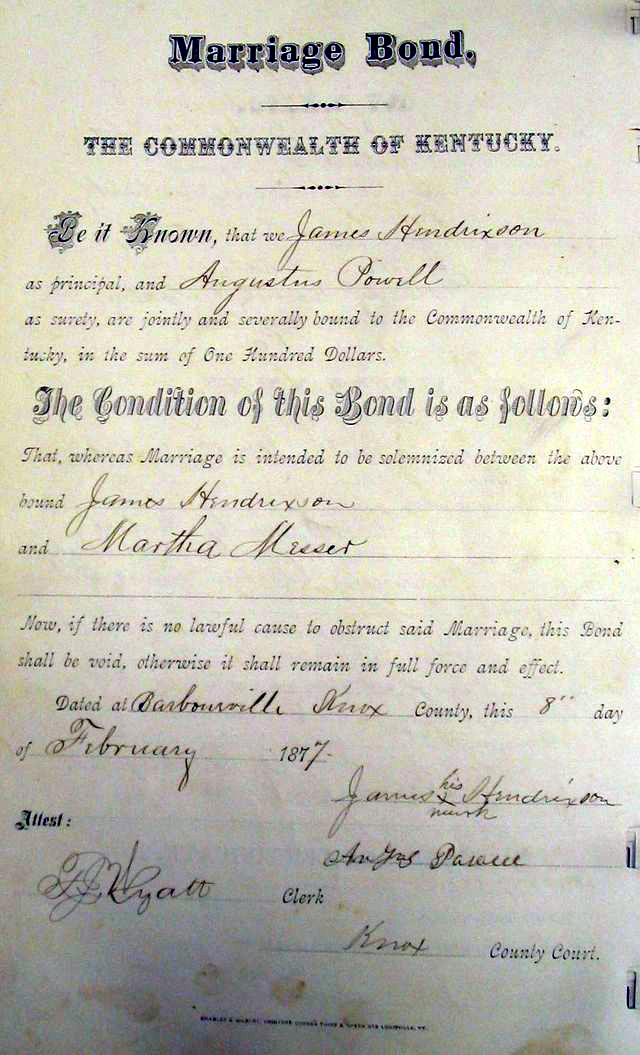 Marriage Bond.
THE COMMONWEALTH OF KENTUCKY.
Be it Known, that we James Hendrixson
as principal, and Augustus Powell
as surety, are jointly and severally bound to the Commonwealth of Ken-
tucky, in the sum of One Hundred Dollars.
The Condition of this Bond is as follows:
That, whereas Marriage is intended to be solemnized between the above
bound James Hendrixson
and Martha Messer
Now, if there is no lawful cause to obstruct said Marriage, this Bond
shall be void, otherwise it shall remain in full force and effect.
Dated at Barbourville Knox County, this 8" day
of February 1877.
his
James x Hendrixson
mark
Attest:
Powell
Wyatt Clerk
Knox County Court.